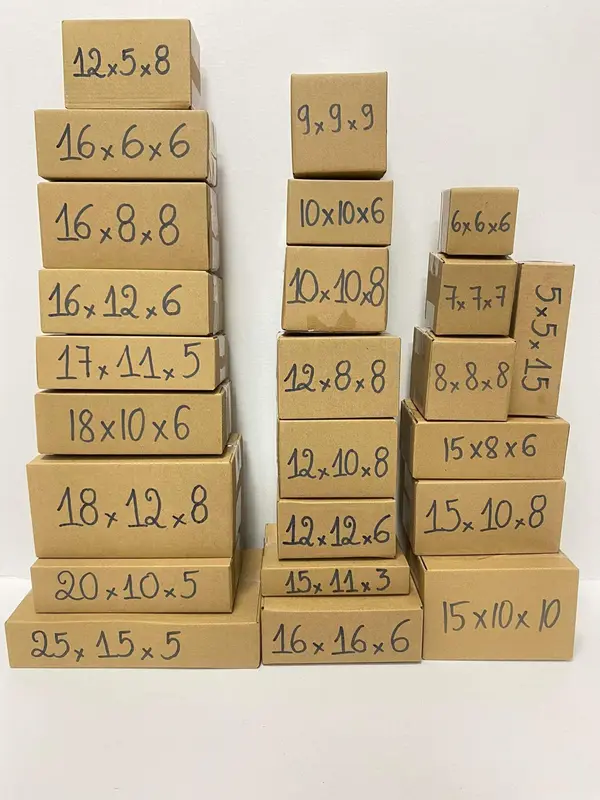 12x5x8
16x6x6
16x8x8
16x12x6
17x11x5
18x10x6
18x12x8
20x10x5
25x15x5
9x9x9
10x10x6
10x10x8
12x8x8
12x10x8
12x12x6
15x11x3
16x16x6
6x6x6
7x7x7
5x5x15
8x8x8
15x8x6
15x10x8
15x10x10